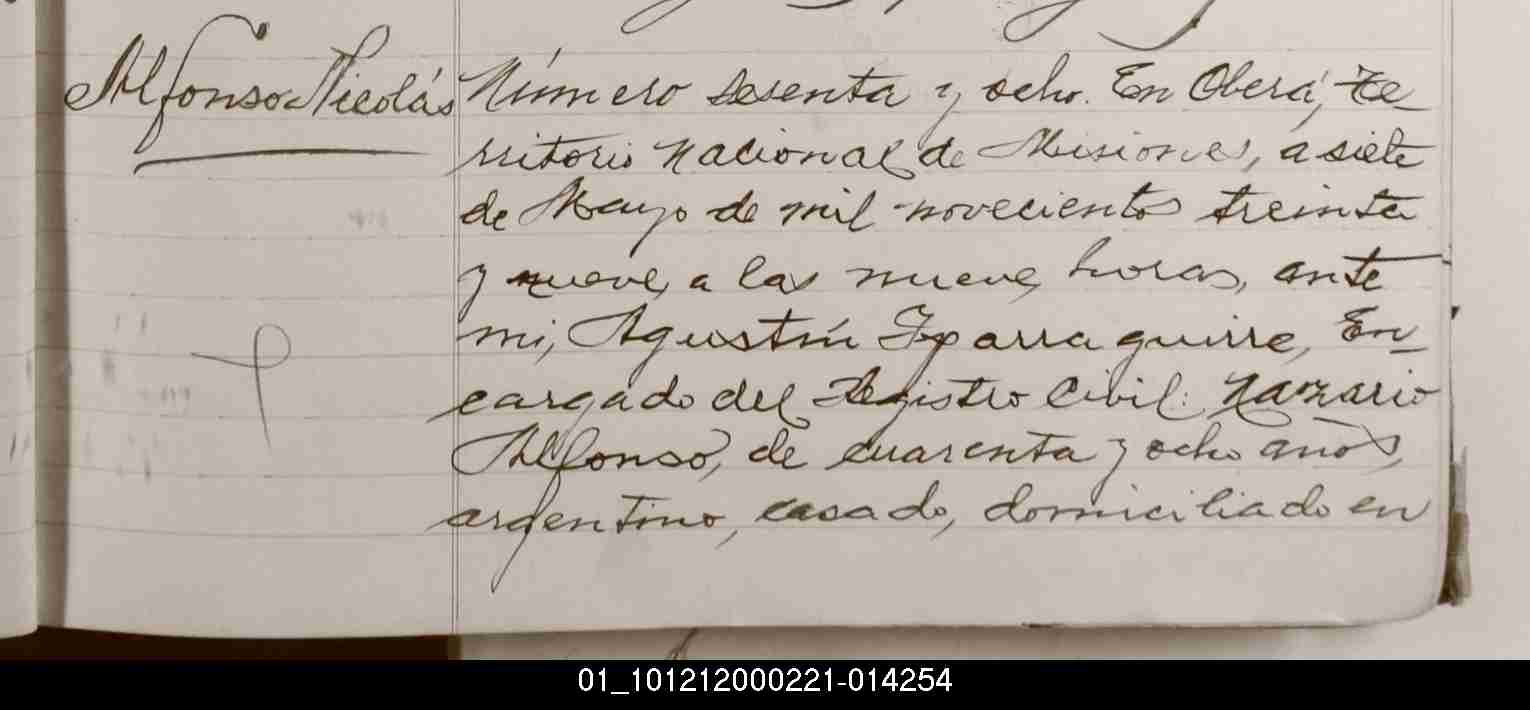 Alfonso Nicolás
Número sesenta y ocho. En Oberá, Te-
rritorio Nacional de Misiones, a siete
de Mayo de mil novecientos treinta
y nueve, a las nueve horas, ante
mi, Agustín Yparraguirre, En-
cargado del Registro Civil: Nazario
Alfonso, de cuarenta y ocho años,
argentino, casado, domiciliado en
01_101212000221-014254